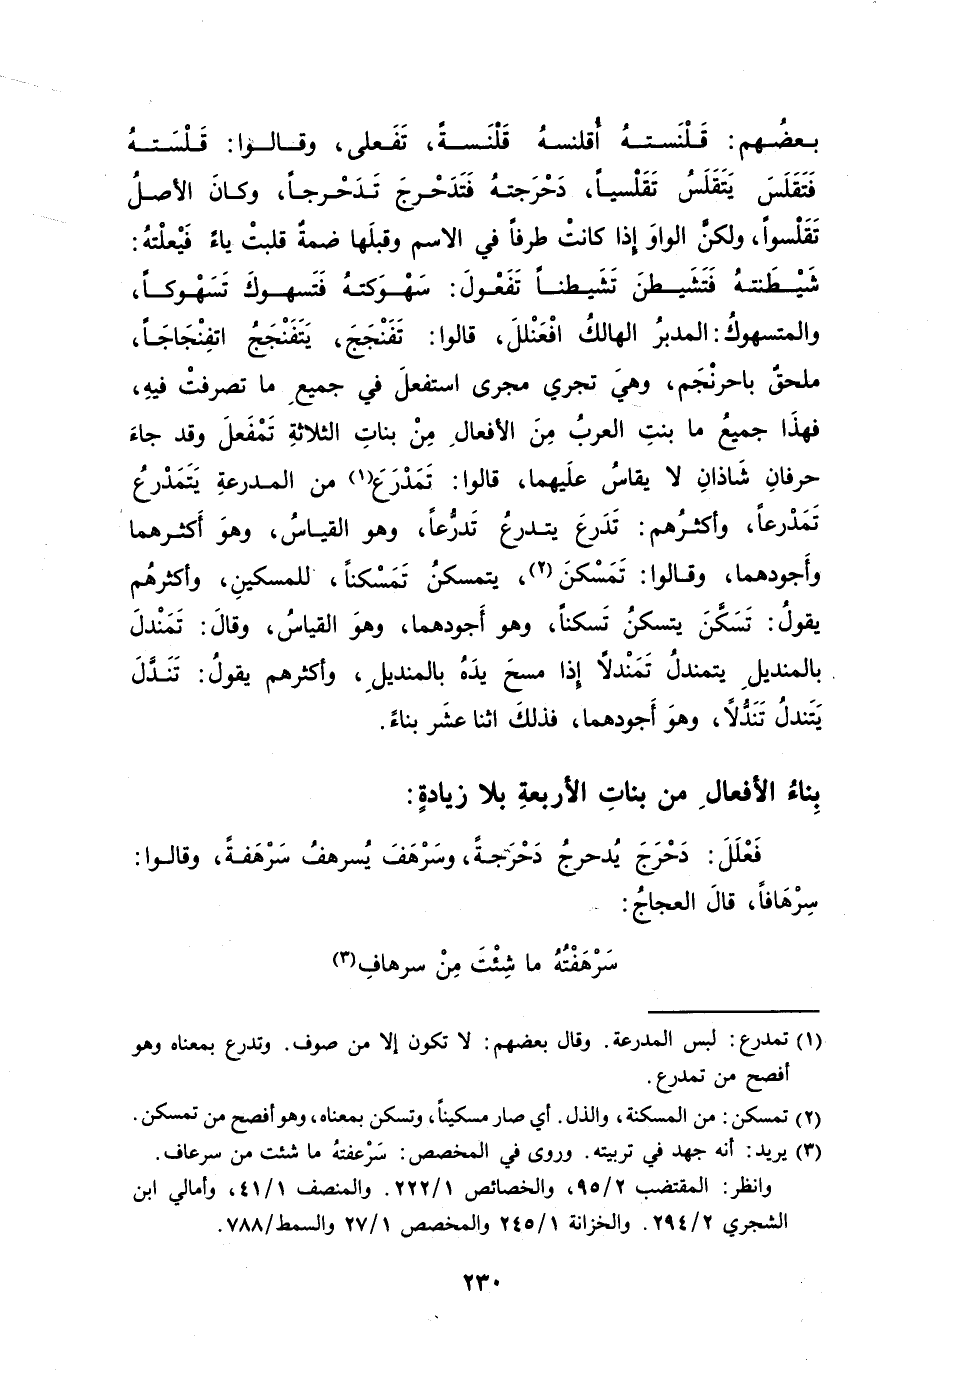 بعضُهم: قَلْنَستهُ أُقلنسهُ قَلْنَسةً، تَفَعلى، وقالوا: قَلْسَتهُ
فَتَقَلَسَ يَتَقَلَسُ تَقَلْسياً، دَحْرَجتهُ فَتَدَحْرجَ تَدَحْرجاً، وكانَ الأصلُ
تَقَلْسواً، ولكنَّ الواوَ إذا كانتْ طرفاً في الاسم وقبلَها ضمةٌ قلبتْ ياءً فَيْعلْتهُ:
شَيْطَنتهُ فَتَشَيطنَ تَشَيطناً تَفَعْولَ: سَهْوَكتهُ فَتَسهوكَ تَسَهْوكاً،
والمتسهوكُ: المدبرُ الهالكُ افْعَنْللَ، قالوا: تَفَنْجَجَ، يَتَفَنْجَجُ اتفِنْجَاجَاً،
ملحقٌ باحرنْجَم، وهيَ تجري مجرى استفعلَ في جميعِ ما تصرفتْ فيهِ،
فهذَا جميعُ ما بنتِ العربُ مِنَ الأفعالِ مِنْ بناتِ الثلاثةِ تَمْفَعلَ وقد جاءَ
حرفانِ شَاذانِ لا يقاسُ علَيهما، قالوا: تَمَدْرَعَ(١) من المدرعةِ يَتَمَدْرعُ
تَمَدْرعاً، وأكثرُهم: تَدَرعَ يتدرعُ تَدرُّعاً، وهو القياسُ، وهوَ أَكثرهما
وأَجودهما، وقالوا: تَمَسْكنَ(٢)، يتمسكنُ تَمَسْكناً، للمسكينِ، وأكثرهُم
يقولُ: تَسَكَّنَ يتسكنُ تَسكناً، وهو أَجودهما، وهوَ القياسُ، وقالَ: تَمَنْدلَ
بالمنديلِ يتمندلُ تَمَنْدلاً إذا مسحَ يدَهُ بالمنديلِ، وأكثرهم يقولُ: تَنَدَّلَ
يَتَندلُ تَنَدُّلاً، وهوَ أَجودهما، فذلكَ اثنا عشَر بناءً.
بِناءُ الأفعالِ من بناتِ الأربعةِ بلا زيادةٍ:
فَعْلَلَ: دَحْرَجَ يُدحرجُ دَحْرَجةً، وسَرْهَفَ يُسرهفُ سَرْهَفةً، وقالوا:
سِرْهَافاً، قالَ العجاجُ:
سَرْهَفْتُهُ ما شِئْتَ مِنْ سرهافِ(٣)
(١) تمدرع: لبس المدرعة. وقال بعضهم: لا تكون إلا من صوف. وتدرع بمعناه وهو
أفصح من تمدرع.
(٢) تمسكن: من المسكنة، والذل. أي صار مسكيناً، وتسكن بمعناه، وهو أفصح من تمسكن.
(٣) يريد: أنه جهد في تربيته. وروى في المخصص: سَرْعفتهُ ما شئت من سرعاف.
وانظر: المقتضب ٢/٩٥، والخصائص ١/٢٢٢. والمنصف ١/٤١، وأمالي ابن
الشجري ٢/٢٩٤. والخزانة ١/٢٤٥ والمخصص ١/٢٧ والسمط/٧٨٨.
٢٣٠